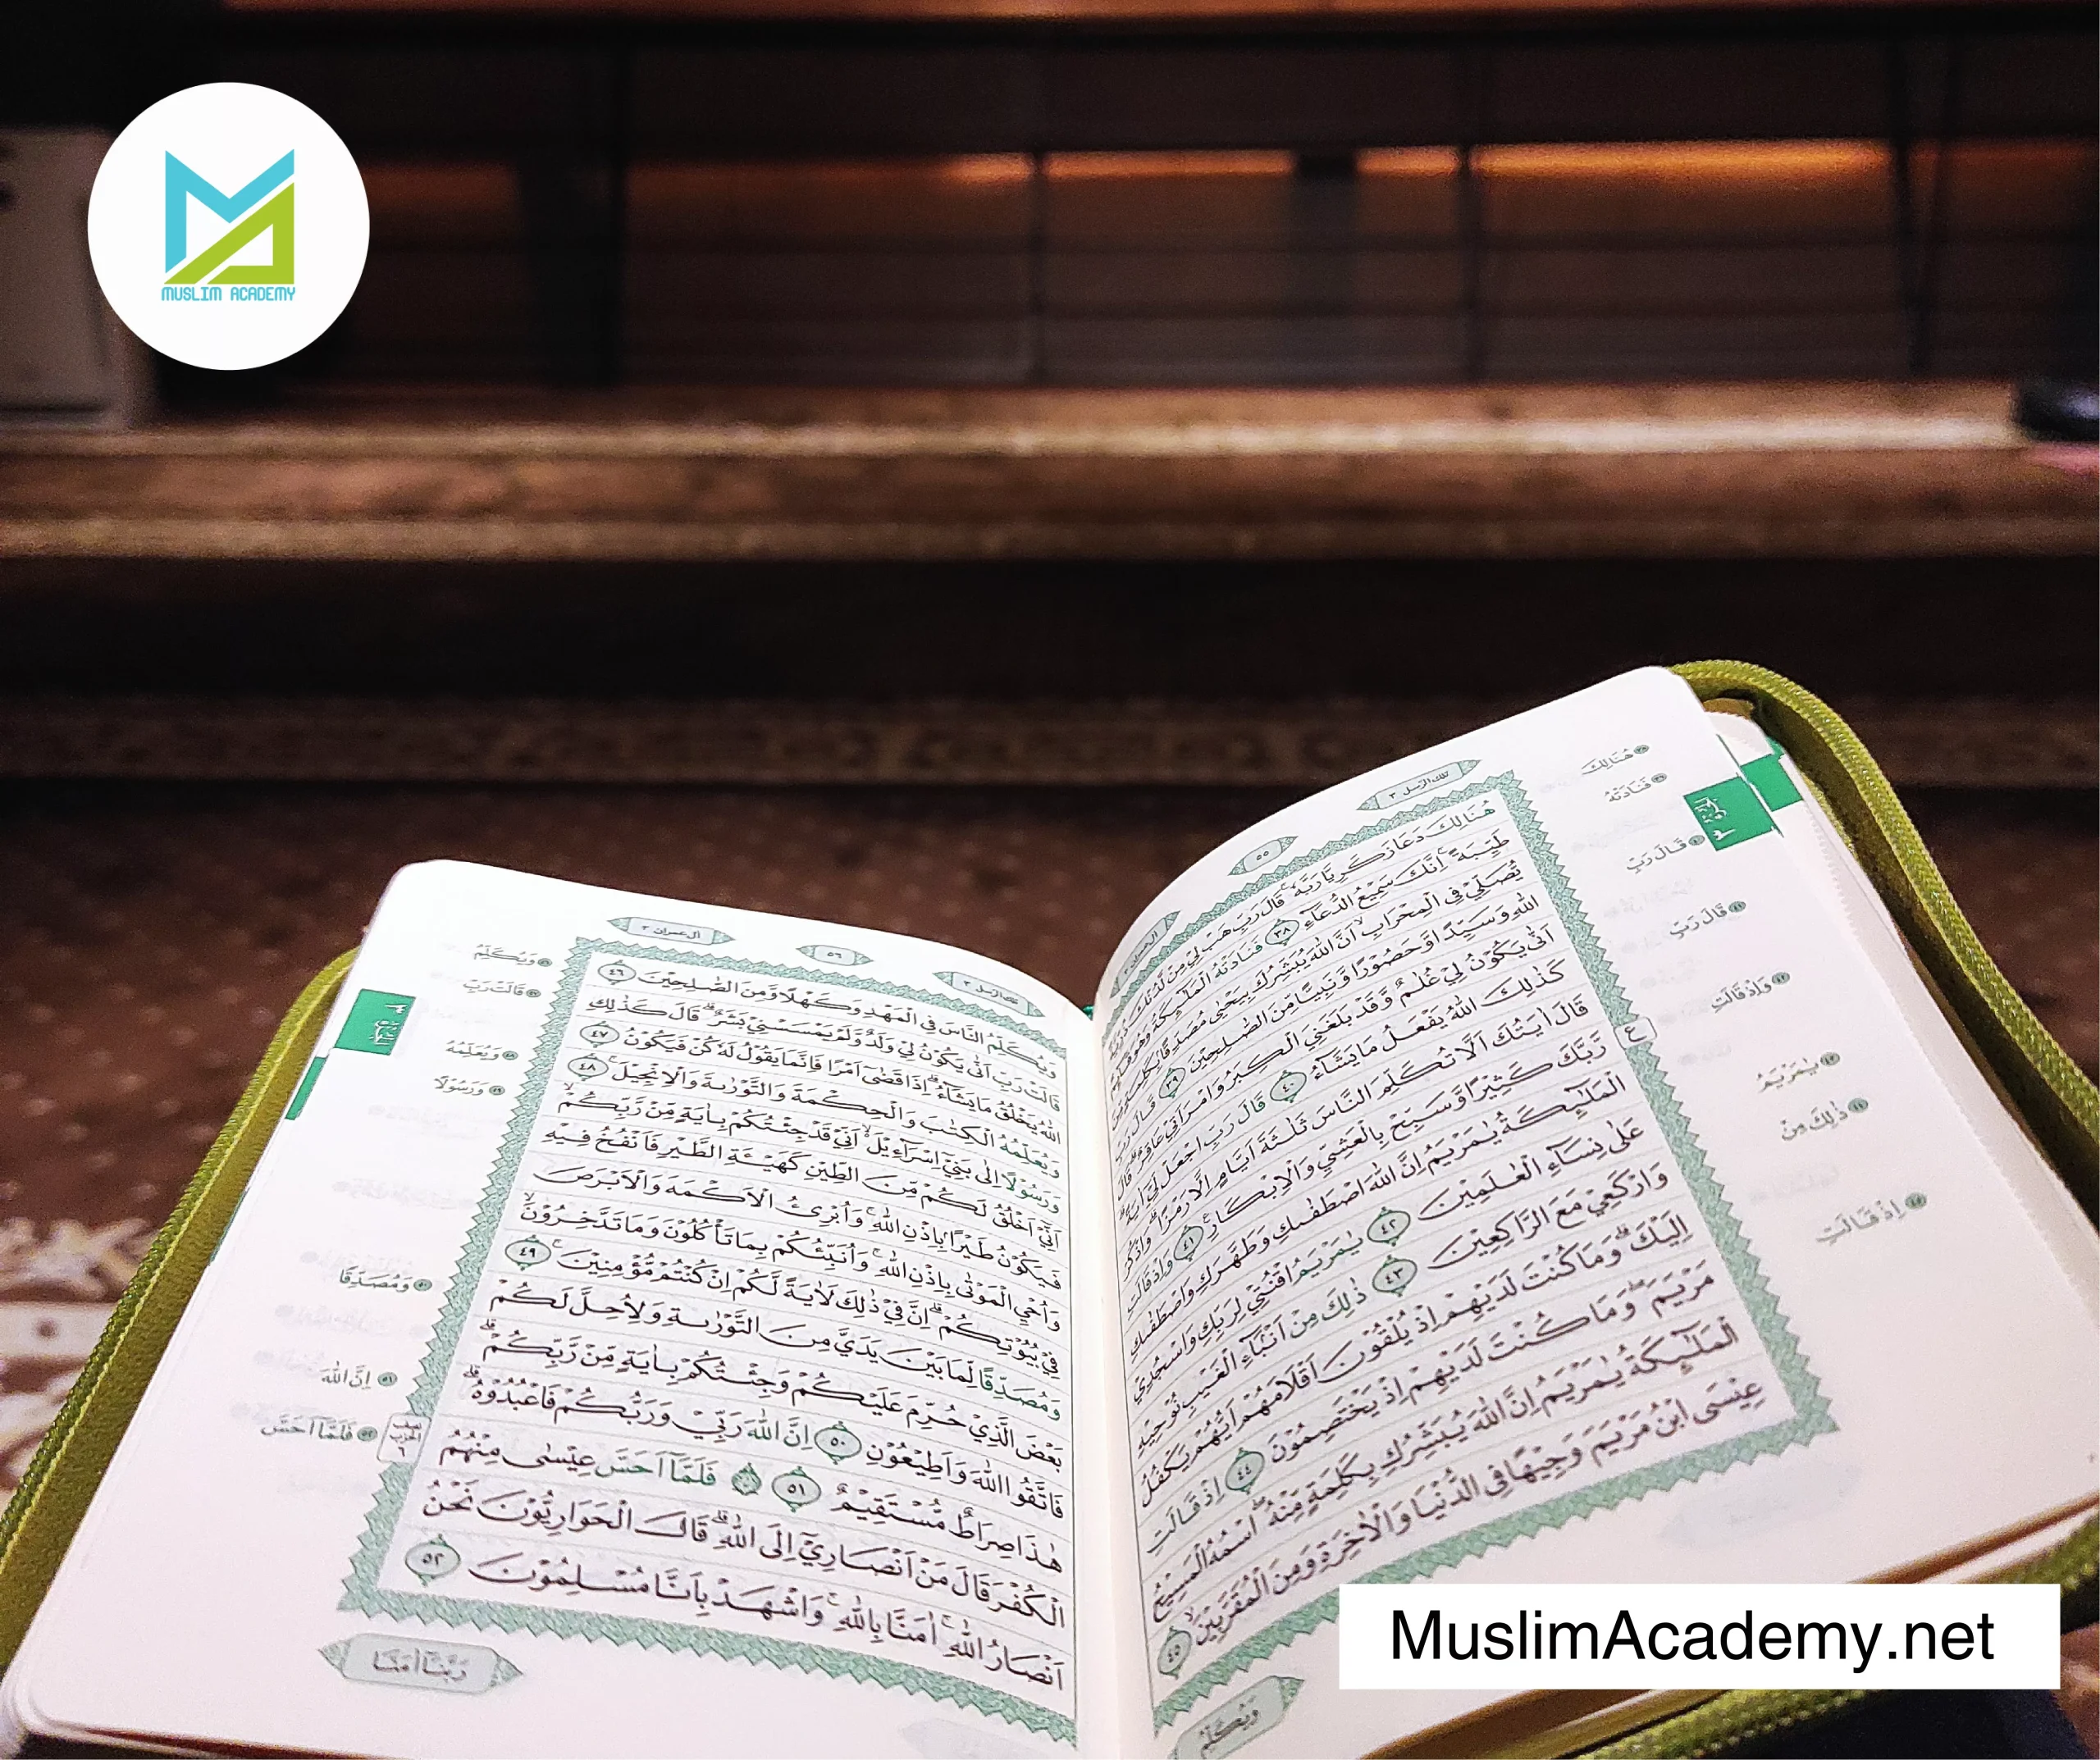 MUSLIM ACADEMY
تلك الرسل ٣
٥٥
هُنَالِكَ دَعَا زَكَرِيَّا رَبَّهٗ ۚ قَالَ رَبِّ هَبْ لِيْ مِنْ لَّدُنْكَ ذُرِّيَّةً
طَيِّبَةً ۚ اِنَّكَ سَمِيْعُ الدُّعَاۤءِ ٣٨ فَنَادَتْهُ الْمَلٰۤىِٕكَةُ وَهُوَ قَاۤىِٕمٌ
يُّصَلِّيْ فِى الْمِحْرَابِۙ اَنَّ اللّٰهَ يُبَشِّرُكَ بِيَحْيٰى مُصَدِّقًاۢ بِكَلِمَةٍ مِّنَ
اللّٰهِ وَسَيِّدًا وَّحَصُوْرًا وَّنَبِيًّا مِّنَ الصّٰلِحِيْنَ ٣٩ قَالَ رَبِّ
اَنّٰى يَكُوْنُ لِيْ غُلٰمٌ وَّقَدْ بَلَغَنِيَ الْكِبَرُ وَامْرَاَتِيْ عَاقِرٌ ۗ قَالَ
كَذٰلِكَ اللّٰهُ يَفْعَلُ مَا يَشَاۤءُ ٤٠ قَالَ رَبِّ اجْعَلْ لِّيْٓ اٰيَةً ۗ
قَالَ اٰيَتُكَ اَلَّا تُكَلِّمَ النَّاسَ ثَلٰثَةَ اَيَّامٍ اِلَّا رَمْزًا ۗ وَاذْكُرْ
رَّبَّكَ كَثِيْرًا وَّسَبِّحْ بِالْعَشِيِّ وَالْاِبْكَارِ ٤١ وَاِذْ قَالَتِ
الْمَلٰۤىِٕكَةُ يٰمَرْيَمُ اِنَّ اللّٰهَ اصْطَفٰىكِ وَطَهَّرَكِ وَاصْطَفٰىكِ
عَلٰى نِسَاۤءِ الْعٰلَمِيْنَ ٤٢ يٰمَرْيَمُ اقْنُتِيْ لِرَبِّكِ وَاسْجُدِيْ
وَارْكَعِيْ مَعَ الرَّاكِعِيْنَ ٤٣ ذٰلِكَ مِنْ اَنْۢبَاۤءِ الْغَيْبِ نُوْحِيْهِ
اِلَيْكَ ۗ وَمَا كُنْتَ لَدَيْهِمْ اِذْ يُلْقُوْنَ اَقْلَامَهُمْ اَيُّهُمْ يَكْفُلُ
مَرْيَمَ ۖ وَمَا كُنْتَ لَدَيْهِمْ اِذْ يَخْتَصِمُوْنَ ٤٤ اِذْ قَالَتِ
الْمَلٰۤىِٕكَةُ يٰمَرْيَمُ اِنَّ اللّٰهَ يُبَشِّرُكِ بِكَلِمَةٍ مِّنْهُ ۖ اسْمُهُ الْمَسِيْحُ
عِيْسَى ابْنُ مَرْيَمَ وَجِيْهًا فِى الدُّنْيَا وَالْاٰخِرَةِ وَمِنَ الْمُقَرَّبِيْنَۙ ٤٥
وَيُكَلِّمُ
هُنَالِكَ
فَنَادَتْهُ
قَالَ رَبِّ
قَالَ رَبِّ
وَاِذْ قَالَتِ
يٰمَرْيَمُ
ذٰلِكَ مِنْ
اِذْ قَالَتِ
ع
٥٦
اٰل عمران ٣
وَيُكَلِّمُ النَّاسَ فِى الْمَهْدِ وَكَهْلًا وَّمِنَ الصّٰلِحِيْنَ ٤٦
قَالَتْ رَبِّ اَنّٰى يَكُوْنُ لِيْ وَلَدٌ وَّلَمْ يَمْسَسْنِيْ بَشَرٌ ۗ قَالَ كَذٰلِكِ
اللّٰهُ يَخْلُقُ مَا يَشَاۤءُ ۗ اِذَا قَضٰٓى اَمْرًا فَاِنَّمَا يَقُوْلُ لَهٗ كُنْ فَيَكُوْنُ ٤٧
وَيُعَلِّمُهُ الْكِتٰبَ وَالْحِكْمَةَ وَالتَّوْرٰىةَ وَالْاِنْجِيْلَۚ ٤٨
وَرَسُوْلًا اِلٰى بَنِيْٓ اِسْرَاۤءِيْلَ ۙ اَنِّيْ قَدْ جِئْتُكُمْ بِاٰيَةٍ مِّنْ رَّبِّكُمْ ۙ
اَنِّيْٓ اَخْلُقُ لَكُمْ مِّنَ الطِّيْنِ كَهَيْـَٔةِ الطَّيْرِ فَاَنْفُخُ فِيْهِ
فَيَكُوْنُ طَيْرًاۢ بِاِذْنِ اللّٰهِ ۚ وَاُبْرِئُ الْاَكْمَهَ وَالْاَبْرَصَ
وَاُحْيِ الْمَوْتٰى بِاِذْنِ اللّٰهِ ۚ وَاُنَبِّئُكُمْ بِمَا تَأْكُلُوْنَ وَمَا تَدَّخِرُوْنَ ۙ
فِيْ بُيُوْتِكُمْ ۗ اِنَّ فِيْ ذٰلِكَ لَاٰيَةً لَّكُمْ اِنْ كُنْتُمْ مُّؤْمِنِيْنَۚ ٤٩
وَمُصَدِّقًا لِّمَا بَيْنَ يَدَيَّ مِنَ التَّوْرٰىةِ وَلِاُحِلَّ لَكُمْ
بَعْضَ الَّذِيْ حُرِّمَ عَلَيْكُمْ وَجِئْتُكُمْ بِاٰيَةٍ مِّنْ رَّبِّكُمْ ۗ
فَاتَّقُوا اللّٰهَ وَاَطِيْعُوْنِ ٥٠ اِنَّ اللّٰهَ رَبِّيْ وَرَبُّكُمْ فَاعْبُدُوْهُ ۗ
هٰذَا صِرَاطٌ مُّسْتَقِيْمٌ ٥١ فَلَمَّآ اَحَسَّ عِيْسٰى مِنْهُمُ
الْكُفْرَ قَالَ مَنْ اَنْصَارِيْٓ اِلَى اللّٰهِ ۗ قَالَ الْحَوَارِيُّوْنَ نَحْنُ
اَنْصَارُ اللّٰهِ ۚ اٰمَنَّا بِاللّٰهِ ۚ وَاشْهَدْ بِاَنَّا مُسْلِمُوْنَ ٥٢
رَبَّنَآ اٰمَنَّا
وَيُكَلِّمُ
قَالَتْ رَبِّ
وَيُعَلِّمُهُ
وَرَسُوْلًا
وَمُصَدِّقًا
اِنَّ اللّٰهَ
فَلَمَّآ اَحَسَّ
نصف
الحزب
٦
MuslimAcademy.net